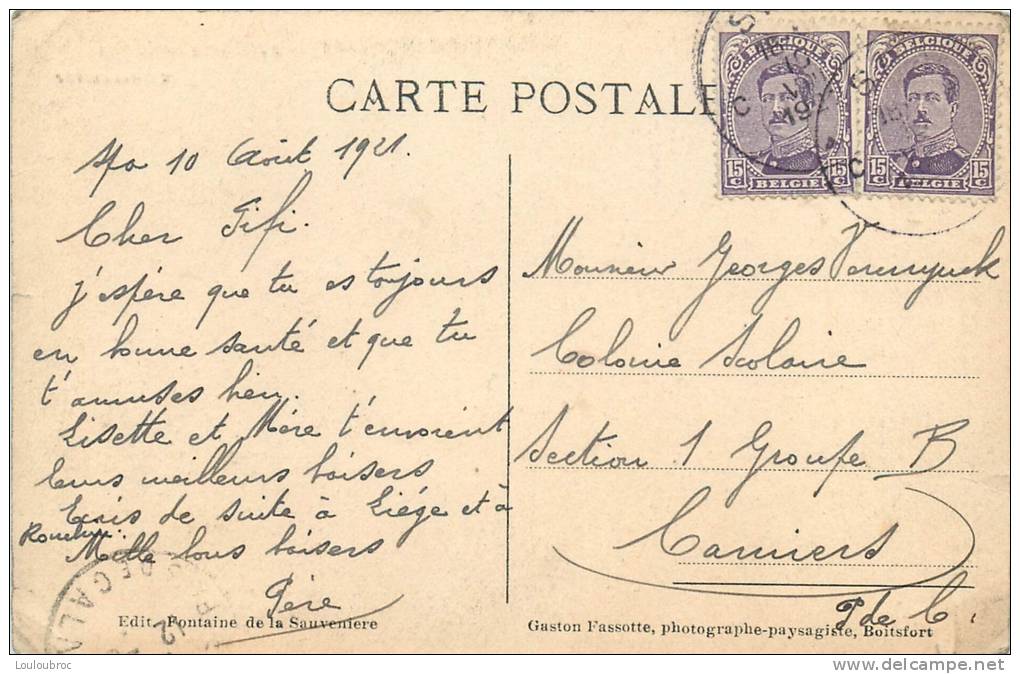 CARTE POSTALE
BELGIQUE
15 C BELGIE 15 C
BELGIQUE
15 C BELGIE 15 C
Spa 10 Août 1921.
Cher Fifi.
j'espère que tu es toujours
en bonne santé et que tu
t'amuses bien.
Lisette et Mère t'envoient
leurs meilleurs baisers
Ecris de suite à Liége et à
Mille bons baisers
Père
Monsieur Georges
Colonie Scolaire
Section 1 Groupe B
Camiers
P de C.
DE CALA
12
Edit. Fontaine de la Sauvenière
Gaston Fassotte, photographe-paysagiste, Boitsfort
Louloubroc
delcampe.net